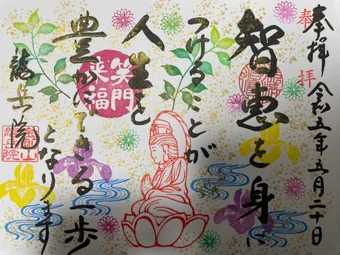 奉拝 令和五年五月二十日
奉拝
智恵を身に
つけることが
人生を
豊かにできる一歩
となります
龍岳院
笑門
来福